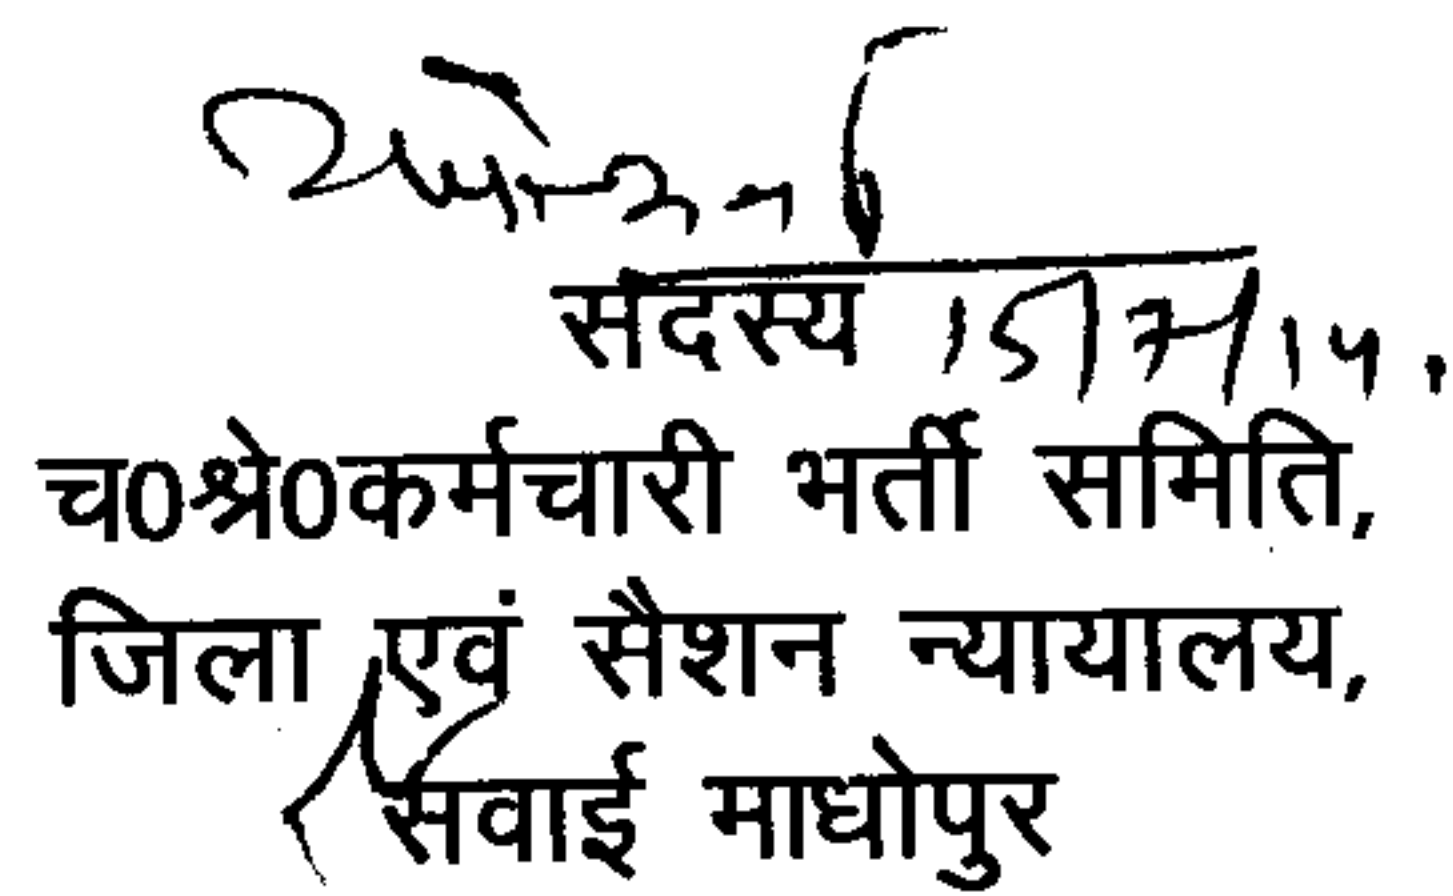 सदस्य
च0श्रे0कर्मचारी भर्ती समिति,
जिला एवं सैशन न्यायालय,
सवाई माधोपुर